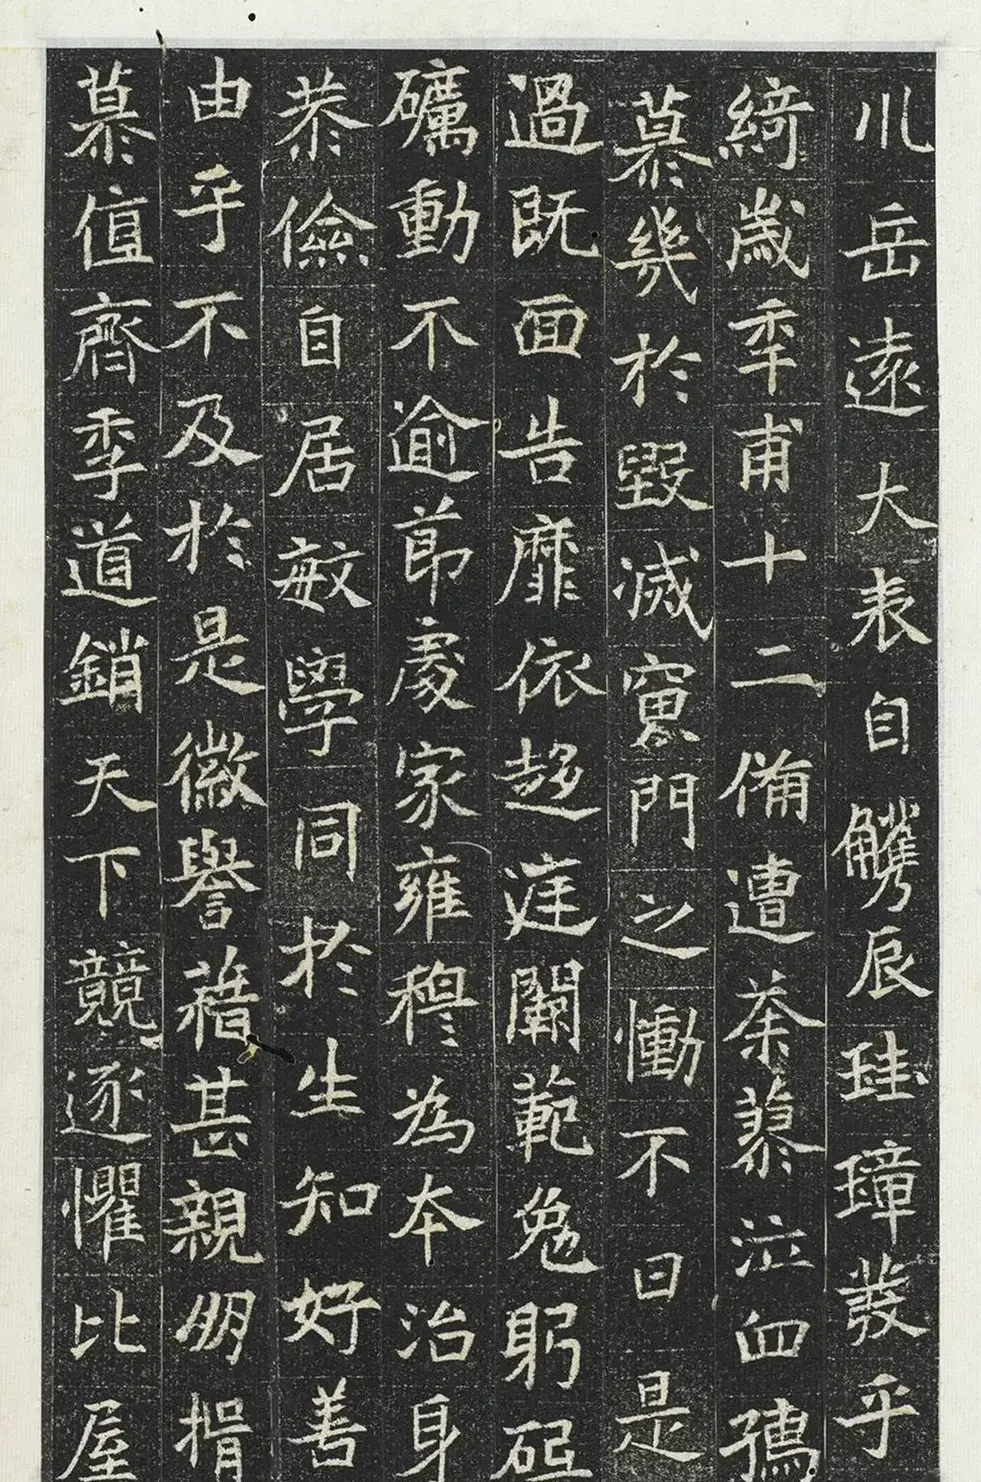 川岳遠大表自觿辰珪璋發乎
綺歲年甫十二俻遭荼蓼泣血孺
慕幾於毀滅寞門之慟不曰是
過既面告靡依趍庭闡範勉躬砥
礪動不逾節處家雍穆為本治身
恭儉自居敏學同於生知好善
由乎不及於是徽譽藉甚親朋揖
慕值齊季道銷天下競逐懼比屋